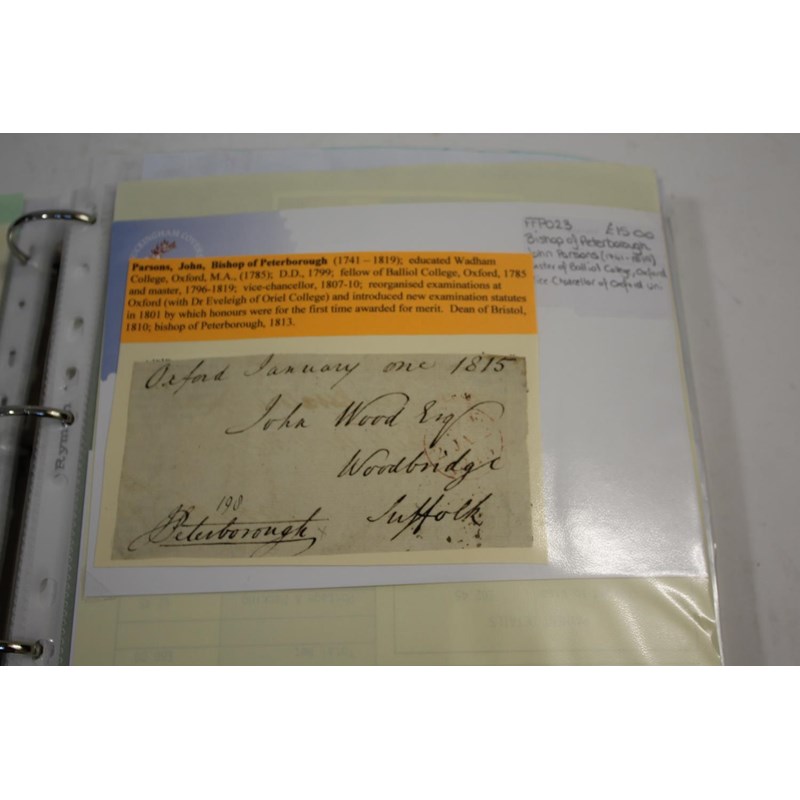 Parsons, John, Bishop of Peterborough (1741 – 1819); educated Wadham
College, Oxford, M.A., (1785); D.D., 1799; fellow of Balliol College, Oxford, 1785
and master, 1796-1819; vice-chancellor, 1807-10; reorganised examinations at
Oxford (with Dr Eveleigh of Oriel College) and introduced new examination statutes
in 1801 by which honours were for the first time awarded for merit. Dean of Bristol,
1810; bishop of Peterborough, 1813.
FFP023 £15.00
Bishop of Peterborough
John Parsons (1741-1819)
Master of Balliol College, Oxford
Vice Chancellor of Oxford Uni.
Oxford January one 1815
John Wood Esq
Woodbridge
Suffolk
198
Peterborough
Rym